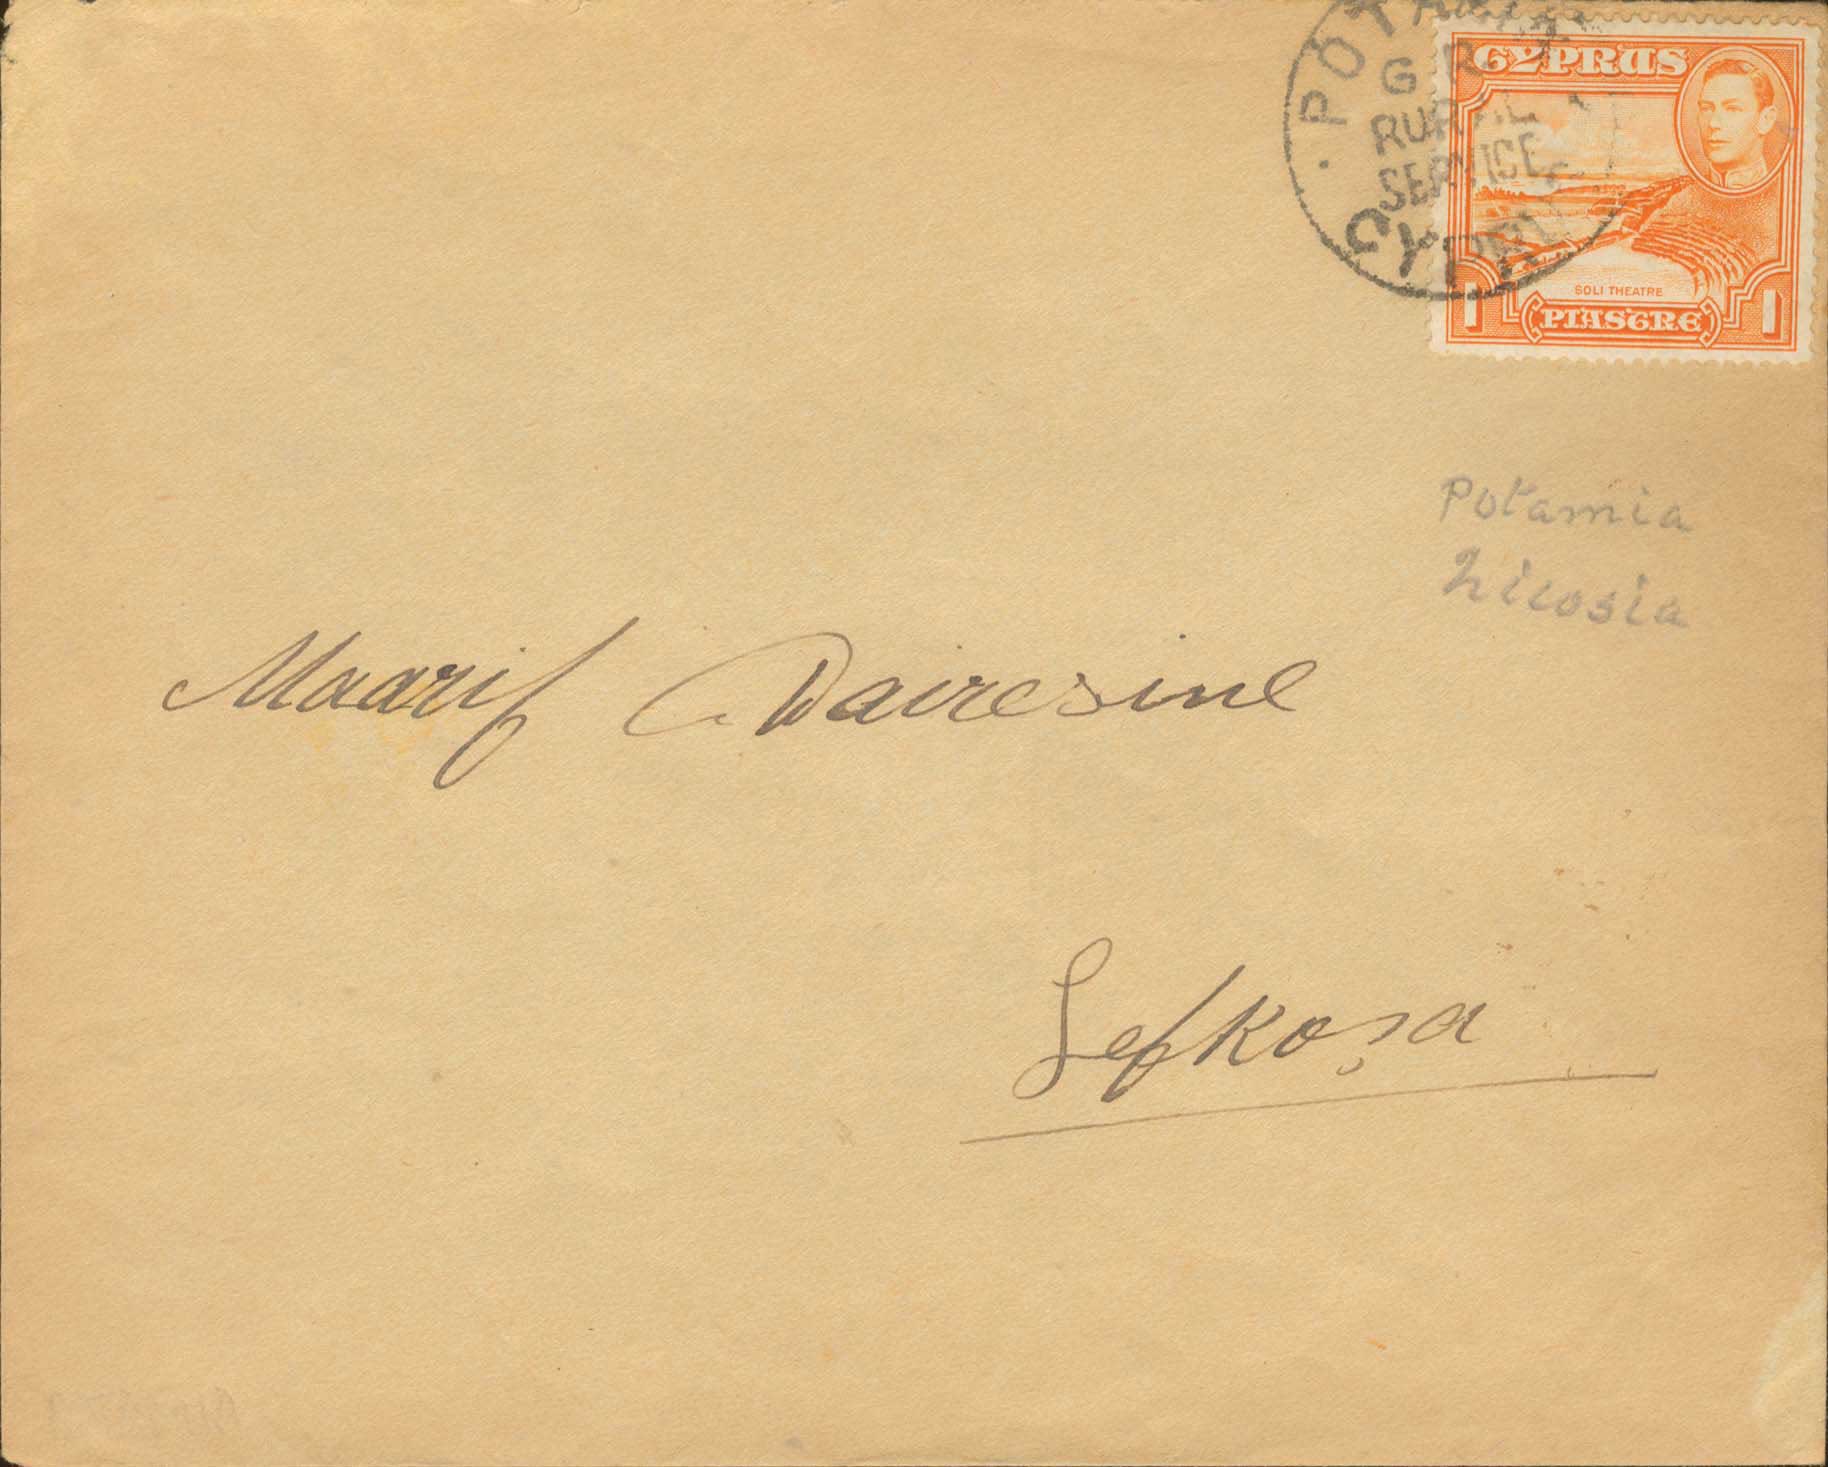 POTAMIA
G. R.
RURAL
SERVICE
CYPRUS
CYPRUS
SOLI THEATRE
1 PIASTRE 1
Potamia
Nicosia
Maarif Dairesine
Lefkoşa